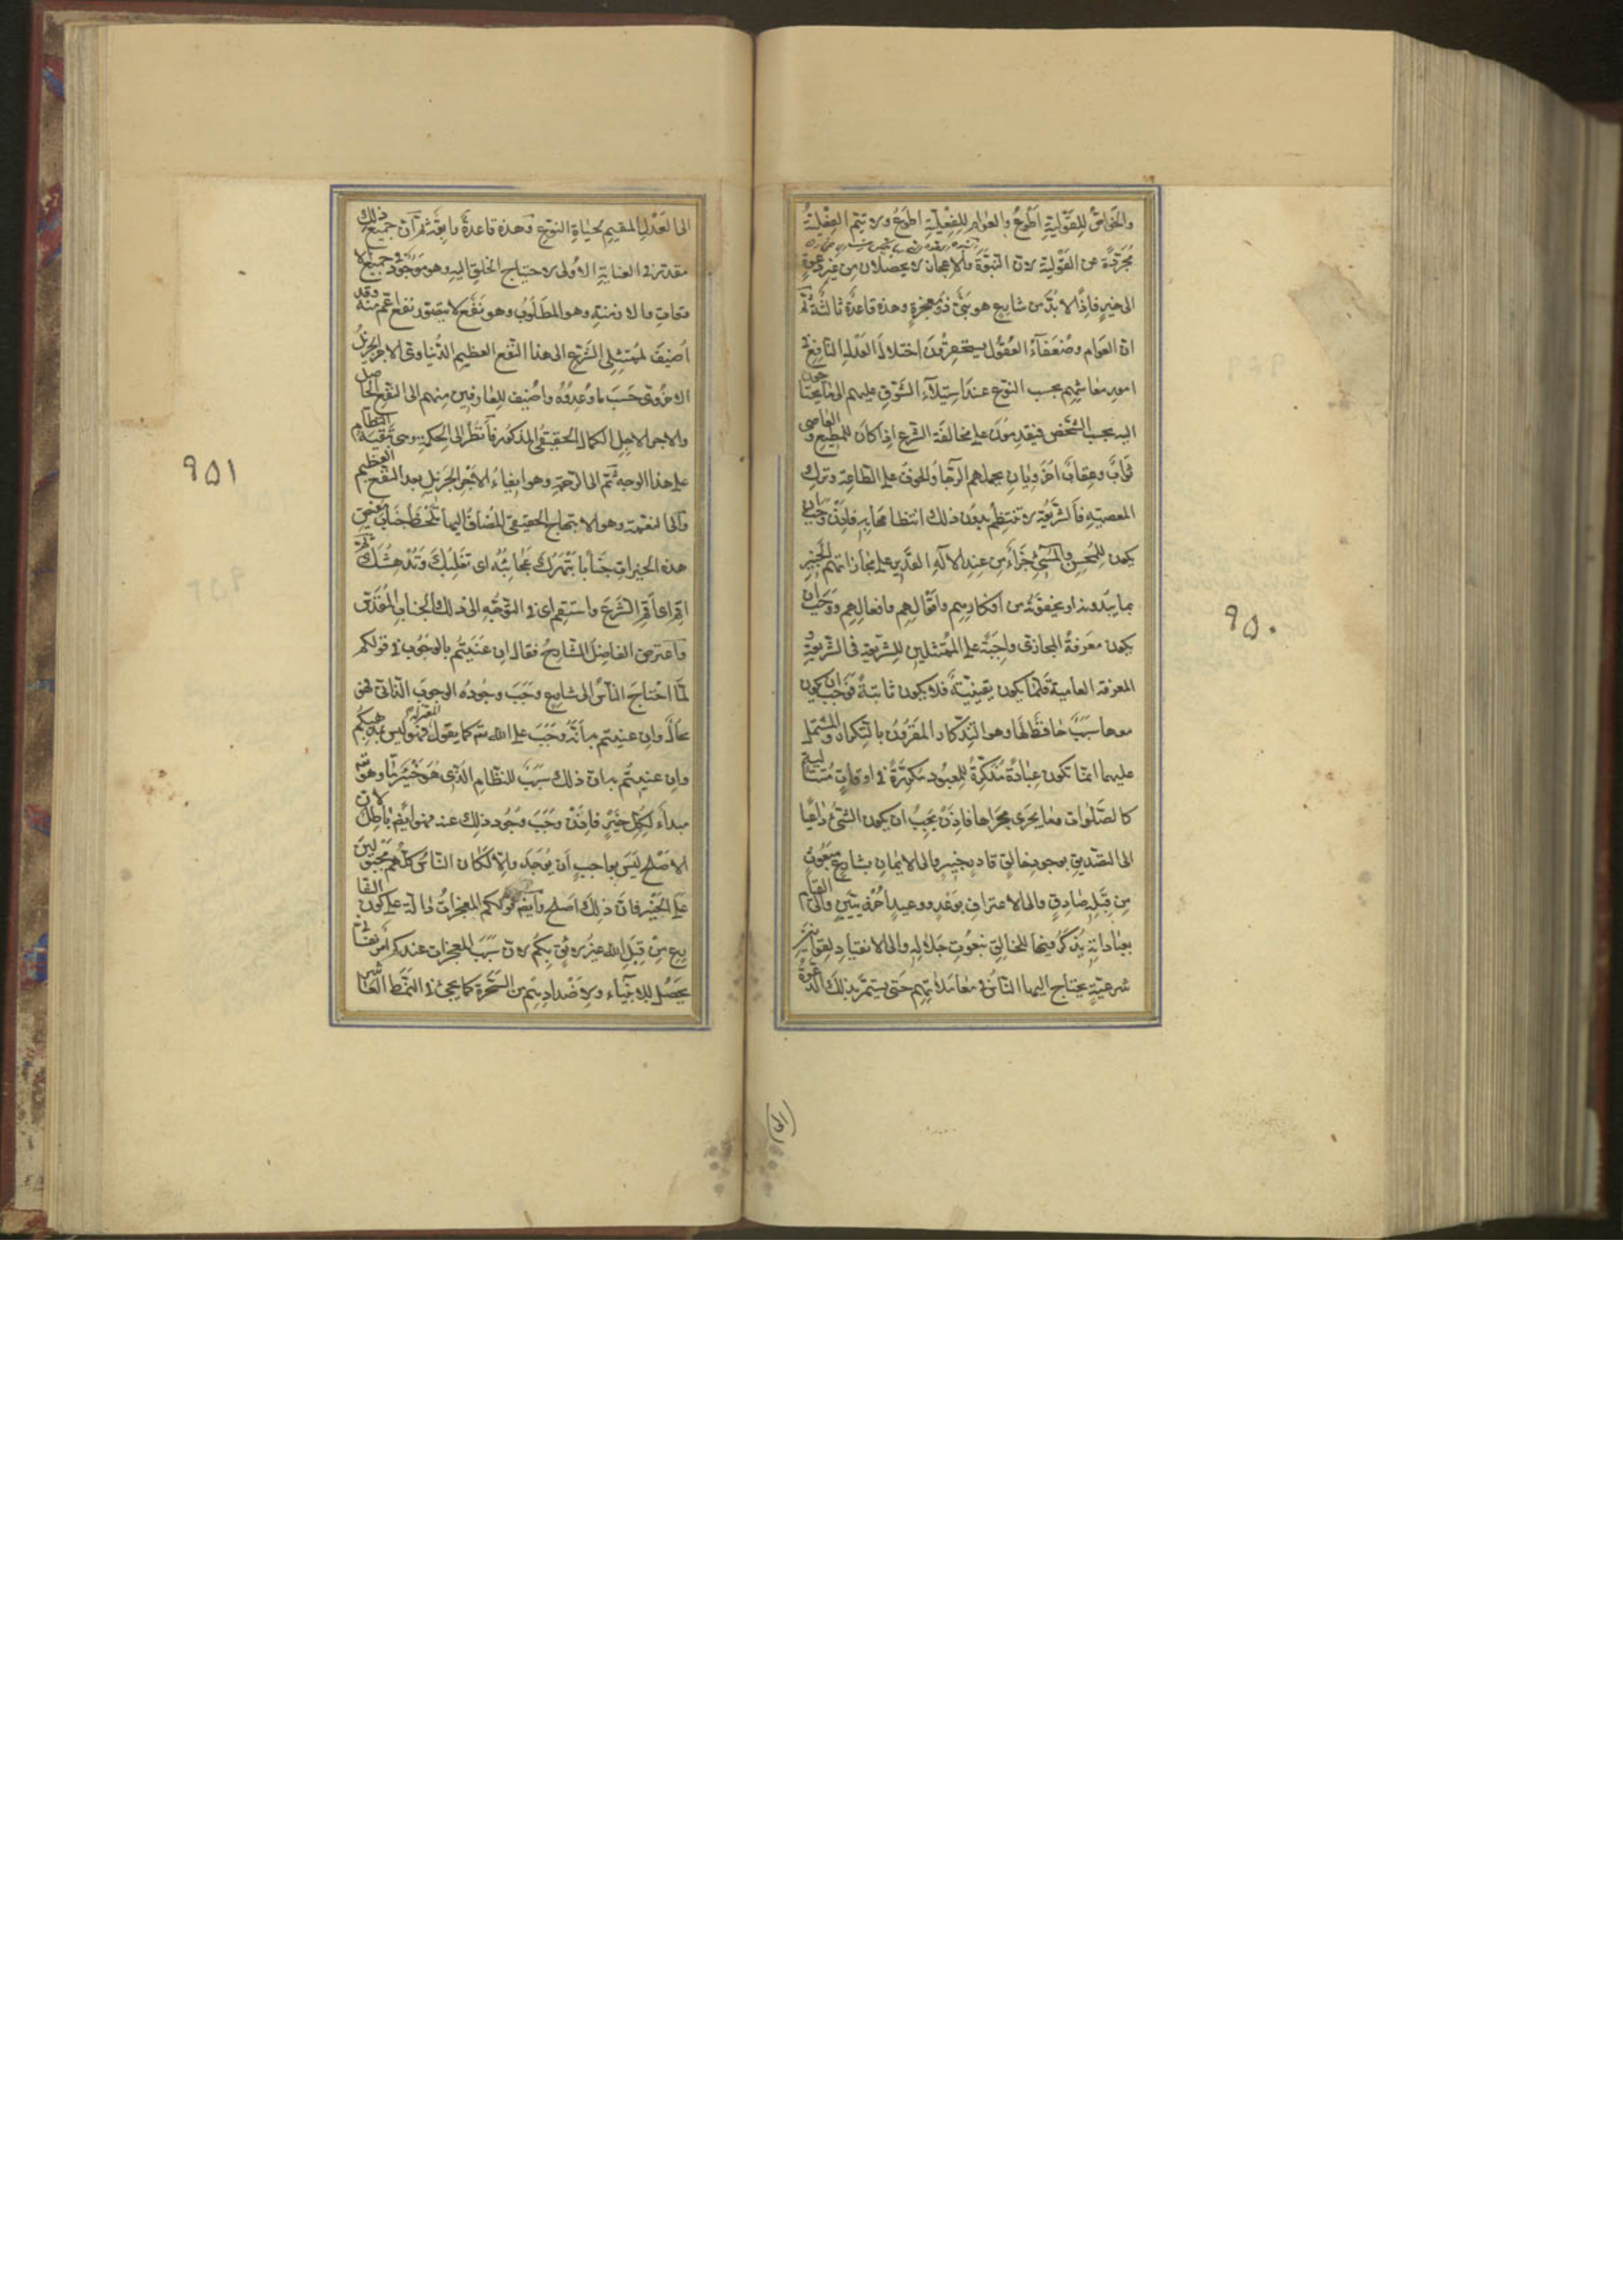 والخواص للقولية اطوع والعوام للفعلية اطوع ولا تتم الفعلية
مجردة عن القولية لان النبوة والاعجاز لا يحصلان من غير دعوة
الى خير فاذًا لا بد من شارع هو نبي ذو معجزة وهذه قاعدة ثالثة ثم
ان العوام وضعفاء العقول يستحقرون اختلال العدل النافع في
امور معاشهم بحسب النوع عند استيلاء الشوق عليهم الى ما يحتاجون
اليه بحسب الشخص فيقدمون على مخالفة الشرع اذا كان للمطيع والعاصى
ثواب وعقاب اخرويان يحملهم الرجاء والخوف على الطاعة وترك
المعصية فالشريعة لا تنتظم بدون ذلك انتظامها به فاذن وجب ان
يكون للمحسن والمسئ جزاء من عند الاله القدير على مجازاتهم الخبير
بما يبدونه او يخفونه من افكارهم واقوالهم وافعالهم ووجب ان
يكون معرفة المجازى واجبة على الممتثلين للشريعة فى الشريعة و
المعرفة العامية قلما يكون يقينية فلا يكون ثابتة فوجب ان يكون
معها سبب حافظ لها وهو التذكار المقرون بالتكرار والمشتمل
عليهما انما تكون عبادة مذكرة للمعبود مكررة في اوقات متتالية
كالصلوات وما يجرى مجراها فاذن يجب ان يكون النبي داعيا
الى التصديق بوجود خالق قادر خبير والى الايمان بشارع مبعوث
من قبله صادق والى الاعتراف بوعد ووعيد اخرويين والى القيام
بعبادات يذكر فيها الخالق بنعوت جلاله والى الانقياد لقوانين
شرعية يحتاج اليها الناس في معاملاتهم حتى يستمر بذلك الدعوة
٩٥٠
(الى)
الى العدل المقيم لحياة النوع وهذه قاعدة رابعة ثم ان جميع ذلك
مقدر في العناية الاولى لاحتياج الخلق اليه وهو موجود في جميع الا
وقات والازمنة وهو المطلوب وهو نفع لا يتصور نفع اعم منه وقد
اضيف لممتثلى الشرع الى هذا النفع العظيم الدنياوى الاجر الجزيل
الاخروى حسب ما وعدوه واضيف للعارفين منهم الى النفع العاجل
والاجر الاجل الكمال الحقيقى المذكور فانظر الى الحكمة وهى تبقية النظام
على هذا الوجه ثم الى الرحمة وهو ايفاء الاجر الجزيل بعد النفع العظيم
والى النعمة وهو الابتهاج الحقيقى المضاف اليهما تلحظ جناب مفيض
هذه الخيرات جنابا تبهرك عجائبه اى تغلبك وتدهشك ثم
اقم اى اقم الشرع واستقم اى في التوجه الى ذلك الجناب المقدس
واعترض الفاضل الشارح فقال ان عنيتم بالوجوب في قولكم
لما احتاج الناس الى شارع وجب وجوده الوجوب الذاتى فهو
محال وان عنيتم به انه وجب على الله تع كما يقوله المعتزلة فهو ليس بمذهبكم
وان عنيتم به ان ذلك سبب للنظام الذى هو خير ما وهو تع
مبدأ لكل خير فاذن وجب وجود ذلك عنه فهو ايضا باطل لان
الاصلح ليس بواجب ان يوجد والا لكان الناس كلهم مجبولين
على الخير فان ذلك اصلح وايضا قولكم المعجزات دالة على كون الشا
رع من قبل الله غير لائق بكم لان سبب المعجزات عندكم امر نفسانى
يحصل للانبياء ولاضدادهم من السحرة كما يجئ في النمط العاشر
٩٥١